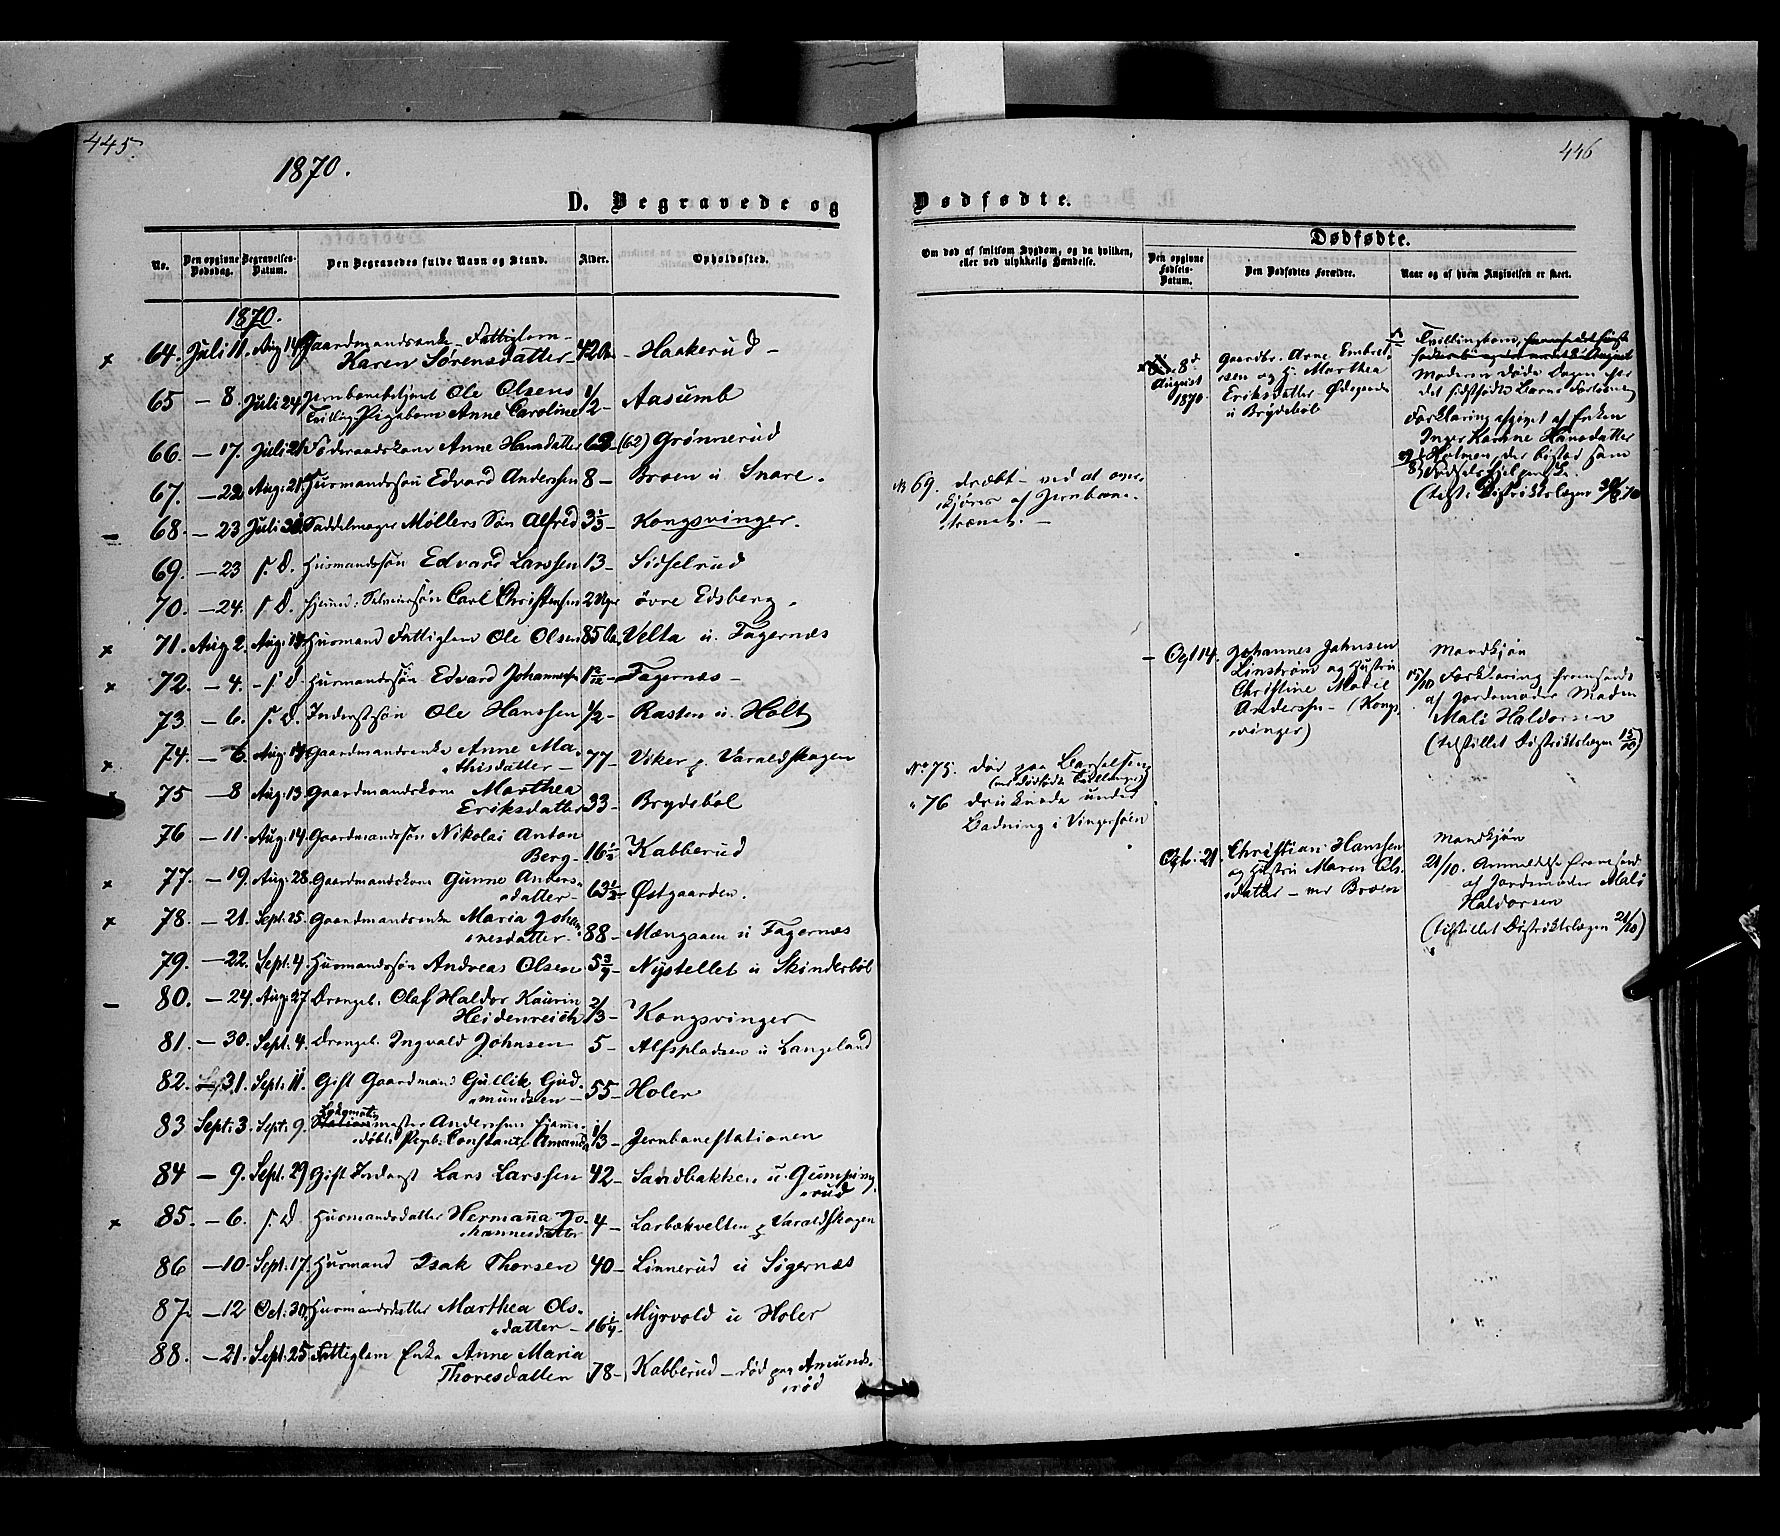 445.
1870.
D. Begravede og
No. Den opgivne Dødsdag. Begravelses-Datum. Den Begravedes fulde Navn og Stand. Alder. Opholdssted.
1870.
x 64. Juli 11. Aug 14 Gaardmandsenke - Fattiglem -
Karen Sørensdatter - - Haakerud -
65 - 8 Juli 24 Jernbanebetjent Ole Olsens
Tvilling Pigebarn Anne Caroline 1/2 - Aasumb
66. - 17. Juli Føderaadskone Anne Hansdatter (62) Grønnerud
67. - 22 Aug. 21. Husmandssøn Edvard Anderssen 8 - Broen u Snare.
- 68. - 23 Juli Saddelmager Møllers Søn Alfred 3 1/3 - Kongsvinger.
69. - 23 s. D. Husmandssøn Edvard Larssen 13 - Sidselrud
70. - 24. s. D. Carl Christensen øvre Edsberg.
x 71. Aug 2. Husmand Fattiglem Ole Olsen 85 Velta u. Fagernæs
x 72. - 4. - s. D Husmandssøn Edvard Johannessen Fagernæs -
73 - 6. s. D. Inderstsøn Ole Hanssen 1/2 - Rasten u. Holt
x 74. - 6. Aug 14 Gaardmandsenke Anne Ma-
thisdatter - 77 - Viker p. Varaldskogen
75 - 8 Aug. 13. Gaardmandskone Marthea
Eriksdatter 33 - Brydebøl
76 - 11. Aug. 14 Gaardmandssøn Nikolai Anton
Berg - 16 1/2 - Kabberud
x 77. - 19. Aug. 28. Gaardmandskone Gunne Anders-
datter - 63 1/2 - Østgaarden.
x 78. - 21. Sept. 25. Gaardmandsenke Maria Johan-
nesdatter - 88 - Mængaaen u Fagernæs
79. - 22. Sept. 4. Husmandssøn Andreas Olsen Nystellet u Skinderbøl
- 80. - 24. Aug. 27. Drengeb. Olaf Haldor Kaurin
Heidenreich 2/3 - Kongsvinger
81. - 30. Sept. 4. Drengeb. Ingvald Johnsen 5 - Alfspladsen u Langeland
82. 31. Sept. 11. Gift Gaardmand Gullik Gud-
mundsen - 55 - Holer
83 Sept. 3. Sept. 9. Lokomotiv
Stationsmester Anderssens hjemme-
døbte Pigeb. Constance Amanda 1/3 - Jernbanestationen
84 - 9. Sept. 29 Gift Inderst Lars Larssen 42 - Sandbakken u. Gumping-
rud
x 85. - 6. s. D Husmandsdatter Hermanna Jo-
hannesdatter 4 - Larbækvelten p Varaldskogen
86 - 10. Sept. 17. Husmand Isak Thorsen 40 - Linnerud u Sigernæs
87. - 12 Oct. 30. Husmandsdatter Marthea Ols-
datter - 16 1/4 - Myrvold u Holer
88. - 21. Sept. 25 Fattiglem Enke Anne Maria
Thoresdatter 78 - Kabberud - død paa Amunds-
rød
446
Dødfødte.
Om død af smitsom Sygdom, og da hvilken, eller ved ulykkelig Hændelse.
Dødfødte.
Den opgivne Fødsels-Datum. Den Dødfødtes Forældre. Naar og af hvem Angivelsen er skeet.
8d
August
1870.
Gaardbr. Arne Embret-
sen og H. Marthea
Eriksdatter Ødegaarden
u Brydebøl
Tvillingbarn,
Moderen døde Dagen efter
det sidstfødte Barns Forløsning
Forklaring afgivet af Enken
Inger Karine Hansdatter
Holmen, der bistod som
Fødselshjelperske.
(tilst. Distriktslægen 30/8 70
No 69. dræbt - ved at over-
kjøres af Jernbane-
trænet. -
- Oct 14. Johannes Jahnsen
Linstrøm og Hustru
Christine Marie
Anderssen - (Kongs-
vinger)
Mandkjøn
15/10 Forklaring fremsendt
af Jordemoder Madm
Mali Haldorsen
(tilstillet Distriktslægen 15/10)
No 75. død paa Barselseng
(med dødfødte Tvillinger)
" 76 druknede under
Badning i Vingersøen
Oct. 21. Christian Hanssen
og Hustru Maren Ols-
datter - ved Broen
Mandkjøn
21/10. Anmeldelse fremsendt
af Jordemoder Mali
Haldorsen
(tilstillet Distriktslægen 21/10)